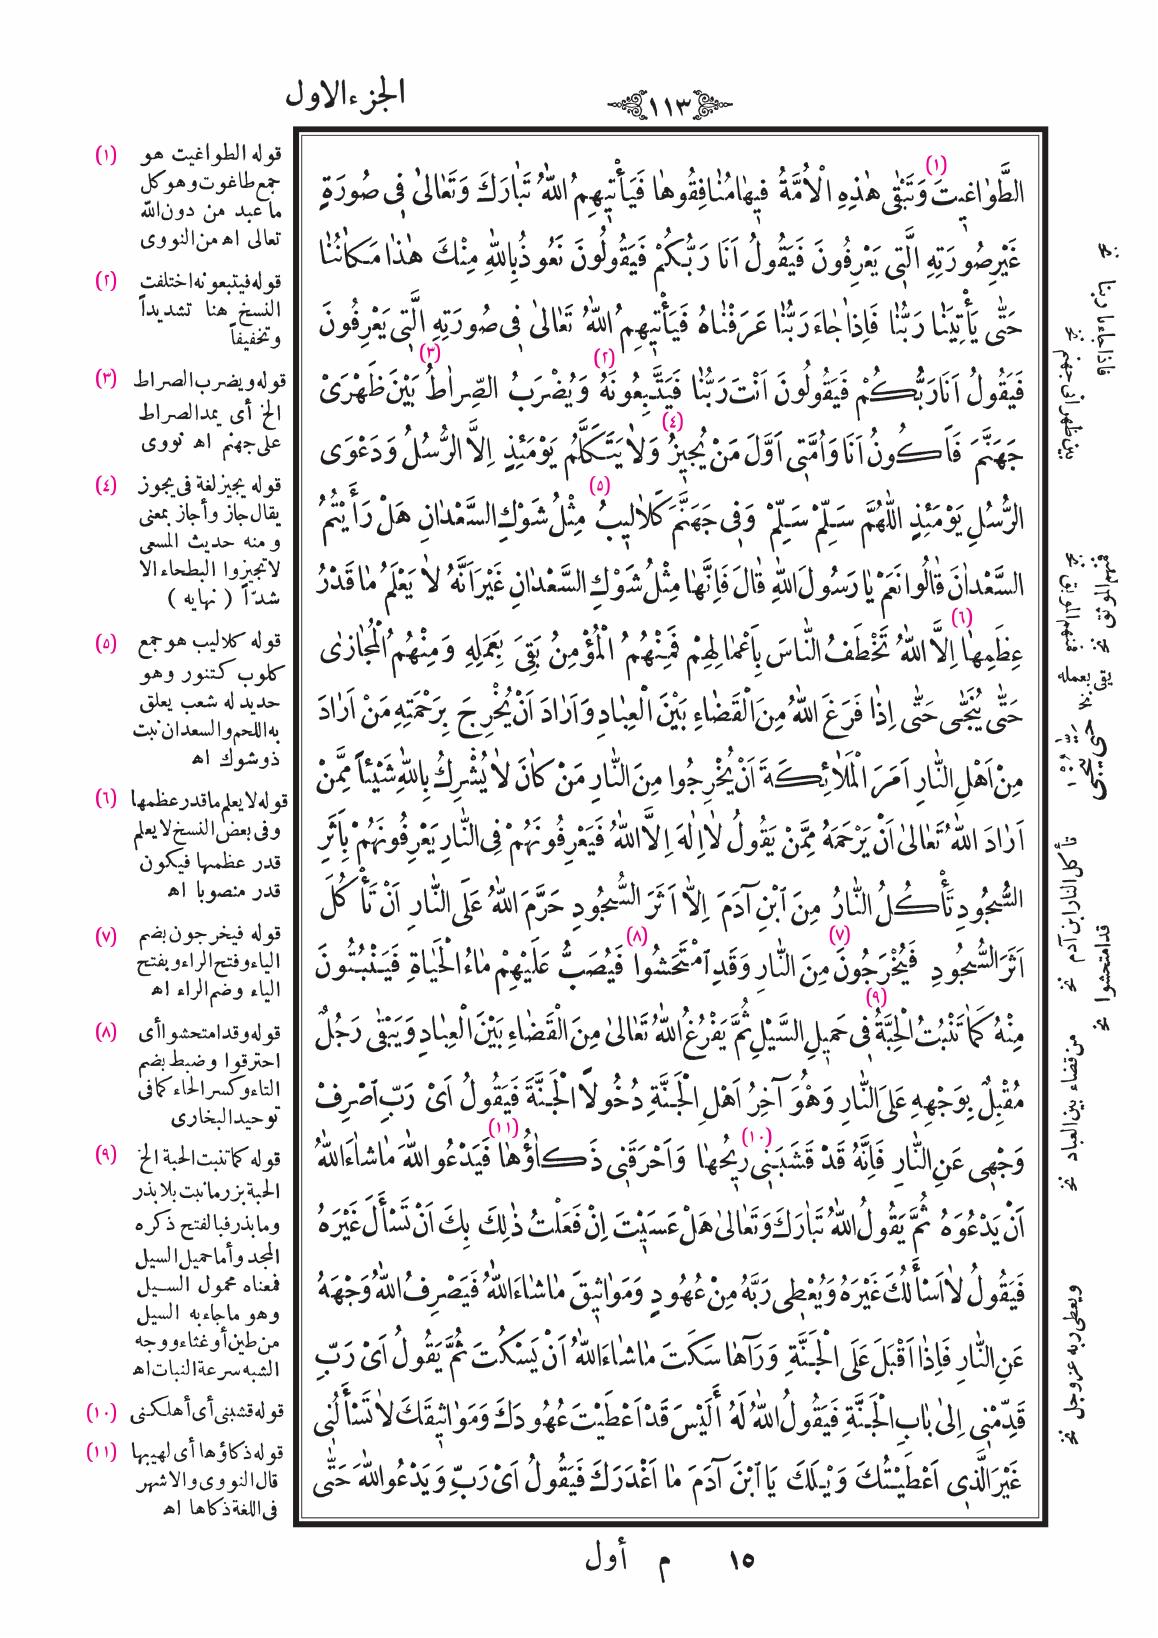 الجزء الاول
١١٣
الطَّوَاغِيتَ وَتَبْقَى هٰذِهِ الْاُمَّةُ فِيهَا مُنَافِقُوهَا فَيَأْتِيهِمُ اللّٰهُ تَبَارَكَ وَتَعَالىٰ فِى صُورَةٍ
غَيْرِ صُورَتِهِ الَّتِى يَعْرِفُونَ فَيَقُولُ اَنَا رَبُّكُمْ فَيَقُولُونَ نَعُوذُ بِاللّٰهِ مِنْكَ هٰذَا مَكَانُنَا
حَتَّى يَأْتِيَنَا رَبُّنَا فَاِذَا جَاءَ رَبُّنَا عَرَفْنَاهُ فَيَأْتِيهِمُ اللّٰهُ تَعَالىٰ فِى صُورَتِهِ الَّتِى يَعْرِفُونَ
فَيَقُولُ اَنَا رَبُّكُمْ فَيَقُولُونَ اَنْتَ رَبُّنَا فَيَتَّبِعُونَهُ وَيُضْرَبُ الصِّرَاطُ بَيْنَ ظَهْرَىْ
جَهَنَّمَ فَاَكُونُ اَنَا وَاُمَّتِى اَوَّلَ مَنْ يُجِيزُ وَلَا يَتَكَلَّمُ يَوْمَئِذٍ اِلَّا الرُّسُلُ وَدَعْوَى
الرُّسُلِ يَوْمَئِذٍ اللّٰهُمَّ سَلِّمْ سَلِّمْ وَفِى جَهَنَّمَ كَلَالِيبُ مِثْلُ شَوْكِ السَّعْدَانِ هَلْ رَأَيْتُمُ
السَّعْدَانَ قَالُوا نَعَمْ يَا رَسُولَ اللّٰهِ قَالَ فَاِنَّهَا مِثْلُ شَوْكِ السَّعْدَانِ غَيْرَ اَنَّهُ لَا يَعْلَمُ مَا قَدْرُ
عِظَمِهَا اِلَّا اللّٰهُ تَخْطَفُ النَّاسَ بِاَعْمَالِهِمْ فَمِنْهُمُ الْمُؤْمِنُ بَقِىَ بِعَمَلِهِ وَمِنْهُمُ الْمُجَازٰى
حَتَّى يُنَجَّى حَتَّى اِذَا فَرَغَ اللّٰهُ مِنَ الْقَضَاءِ بَيْنَ الْعِبَادِ وَاَرَادَ اَنْ يُخْرِجَ بِرَحْمَتِهِ مَنْ اَرَادَ
مِنْ اَهْلِ النَّارِ اَمَرَ الْمَلَائِكَةَ اَنْ يُخْرِجُوا مِنَ النَّارِ مَنْ كَانَ لَا يُشْرِكُ بِاللّٰهِ شَيْئاً مِمَّنْ
اَرَادَ اللّٰهُ تَعَالىٰ اَنْ يَرْحَمَهُ مِمَّنْ يَقُولُ لَا اِلٰهَ اِلَّا اللّٰهُ فَيَعْرِفُونَهُمْ فِى النَّارِ يَعْرِفُونَهُمْ بِاَثَرِ
السُّجُودِ تَأْكُلُ النَّارُ مِنَ ابْنِ آدَمَ اِلَّا اَثَرَ السُّجُودِ حَرَّمَ اللّٰهُ عَلَى النَّارِ اَنْ تَأْكُلَ
اَثَرَ السُّجُودِ فَيُخْرَجُونَ مِنَ النَّارِ وَقَدِ امْتَحَشُوا فَيُصَبُّ عَلَيْهِمْ مَاءُ الْحَيَاةِ فَيَنْبُتُونَ
مِنْهُ كَمَا تَنْبُتُ الْحِبَّةُ فِى حَمِيلِ السَّيْلِ ثُمَّ يَفْرُغُ اللّٰهُ تَعَالىٰ مِنَ الْقَضَاءِ بَيْنَ الْعِبَادِ وَيَبْقَى رَجُلٌ
مُقْبِلٌ بِوَجْهِهِ عَلَى النَّارِ وَهُوَ آخِرُ اَهْلِ الْجَنَّةِ دُخُولاً الْجَنَّةَ فَيَقُولُ اَىْ رَبِّ اصْرِفْ
وَجْهِى عَنِ النَّارِ فَاِنَّهُ قَدْ قَشَبَنِى رِيحُهَا وَاَحْرَقَنِى ذَكَاؤُهَا فَيَدْعُو اللّٰهَ مَا شَاءَ اللّٰهُ
اَنْ يَدْعُوَهُ ثُمَّ يَقُولُ اللّٰهُ تَبَارَكَ وَتَعَالىٰ هَلْ عَسَيْتَ اِنْ فَعَلْتُ ذٰلِكَ بِكَ اَنْ تَسْأَلَ غَيْرَهُ
فَيَقُولُ لَا اَسْأَلُكَ غَيْرَهُ وَيُعْطِى رَبَّهُ مِنْ عُهُودٍ وَمَوَاثِيقَ مَا شَاءَ اللّٰهُ فَيَصْرِفُ اللّٰهُ وَجْهَهُ
عَنِ النَّارِ فَاِذَا اَقْبَلَ عَلَى الْجَنَّةِ وَرَآهَا سَكَتَ مَا شَاءَ اللّٰهُ اَنْ يَسْكُتَ ثُمَّ يَقُولُ اَىْ رَبِّ
قَدِّمْنِى اِلىٰ بَابِ الْجَنَّةِ فَيَقُولُ اللّٰهُ لَهُ أَلَيْسَ قَدْ اَعْطَيْتَ عُهُودَكَ وَمَوَاثِيقَكَ لَا تَسْأَلُنِى
غَيْرَ الَّذِى اَعْطَيْتُكَ وَيْلَكَ يَا ابْنَ آدَمَ مَا اَغْدَرَكَ فَيَقُولُ اَىْ رَبِّ وَيَدْعُو اللّٰهَ حَتَّى
(١) قوله الطواغيت هو
جمع طاغوت وهو كل
ما عبد من دون الله
تعالى اه من النووى
(٢) قوله فيتبعونه اختلفت
النسخ هنا تشديداً
وتخفيفاً
(٣) قوله ويضرب الصراط
الخ أى يمد الصراط
على جهنم اه نووى
(٤) قوله يجيز لغة فى يجوز
يقال جاز وأجاز بمعنى
ومنه حديث المسعى
لا تجيزوا البطحاء الا
شدّاً (نهايه)
(٥) قوله كلاليب هو جمع
كلوب كتنور وهو
حديد له شعب يعلق
به اللحم والسعدان نبت
ذو شوك اه
(٦) قوله لا يعلم ما قدر عظمها
وفى بعض النسخ لا يعلم
قدر عظمها فيكون
قدر منصوبا اه
(٧) قوله فيخرجون بضم
الياء وفتح الراء وبفتح
الياء وضم الراء اه
(٨) قوله وقد امتحشوا أى
احترقوا وضبط بضم
التاء وكسر الحاء كما فى
توحيد البخارى
(٩) قوله كما تنبت الحبة الخ
الحبة بزر ما نبت بلا بذر
وما بذر فبالفتح ذكره
المجد وأما حميل السيل
فمعناه محمول السيل
وهو ما جاء به السيل
من طين أو غثاء ووجه
الشبه سرعة النبات اه
(١٠) قوله قشبنى أى أهلكنى
(١١) قوله ذكاؤها أى لهيبها
قال النووى والاشهر
فى اللغة ذكاها اه
فاذا جاءنا ربنا نخ
بين ظهرانى جهنم نخ
فمنهم الموبق نخ
الموثق نخ
يقى بعمله
حتى ينجى
تأكل النار ابن آدم نخ
قد امتحشوا نخ
من قضاء بين العباد نخ
ويعطى ربه عز وجل نخ
١٥ م أول